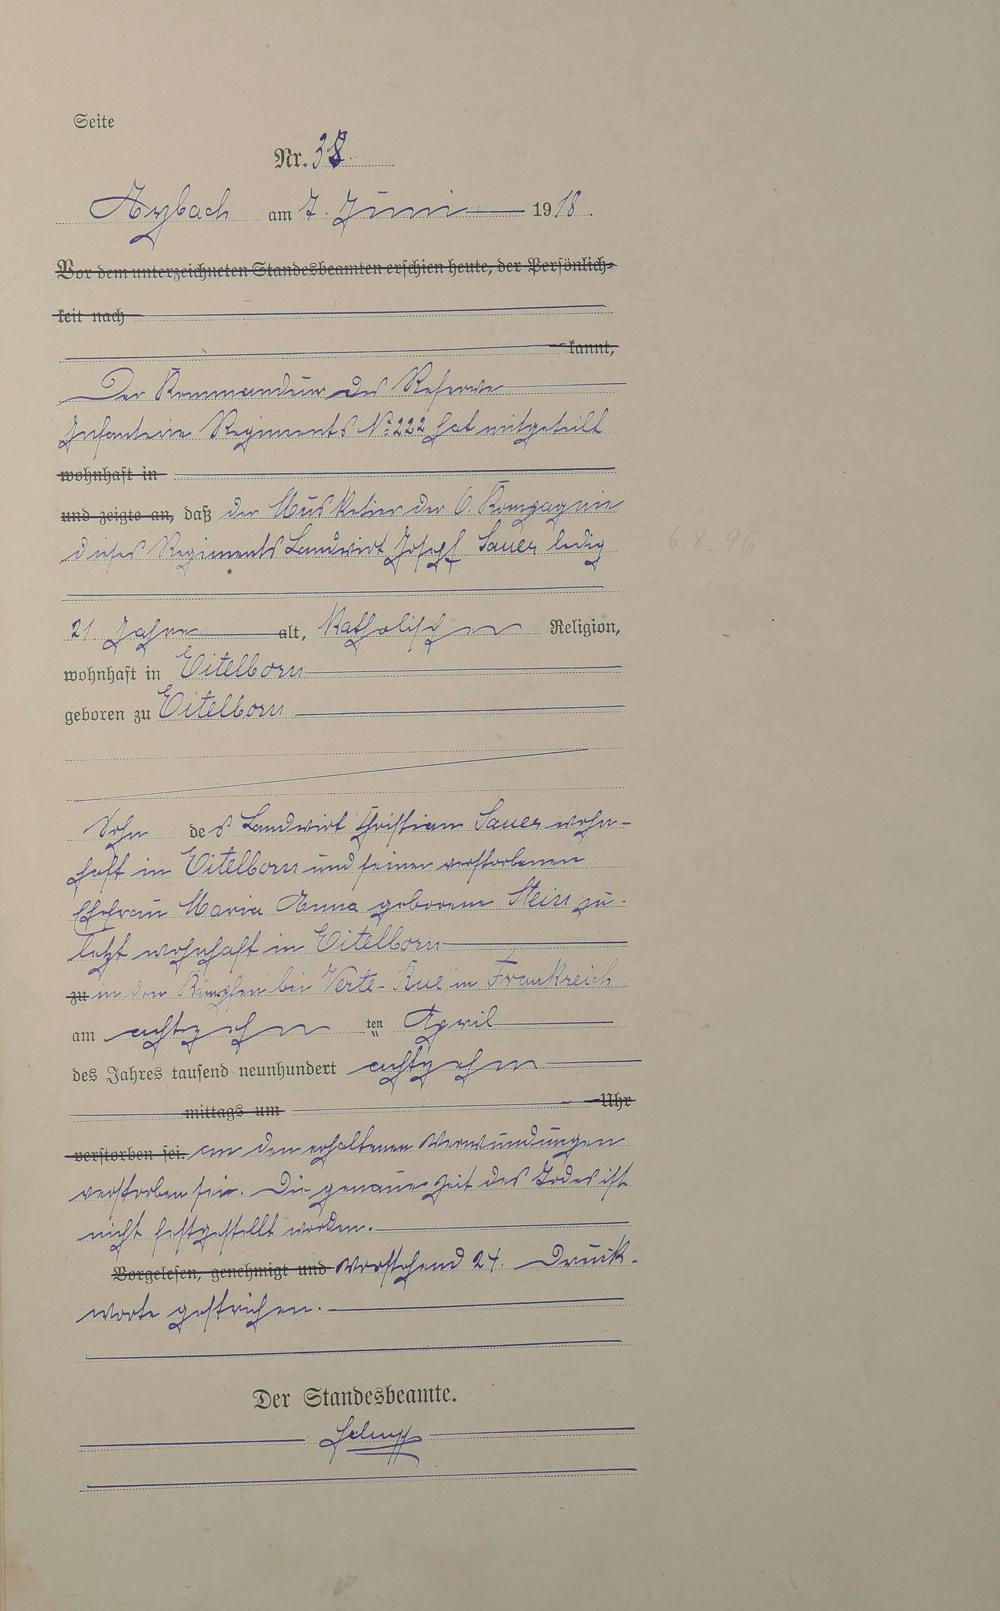 Seite
Nr. 38.
Arzbach am 7. Juni 1918.
Vor dem unterzeichneten Standesbeamten erschien heute, der Persönlich-
keit nach
kannt,
Der Kommandeur des Reserve
Infanterie Regiments No 222 hat mitgeteilt
wohnhaft in
und zeigte an, daß der Musketier der 6. Kompagnie
dieses Regiments Landwirt Josef Sauer ledig
6.8.96
21 Jahre alt, katholischen Religion,
wohnhaft in Eitelborn
geboren zu Eitelborn
Sohn des Landwirt Christian Sauer wohn-
haft in Eitelborn und seiner verstorbenen
Ehefrau Maria Anna geborene Stein zu-
letzt wohnhaft in Eitelborn
zu in den Kämpfen bei Verte-Rue in Frankreich
am achtzehn ten April
des Jahres tausend neunhundert achtzehn
mittags um Uhr
verstorben sei. an den erhaltenen Verwundungen
verstorben sei. Die genaue Zeit des Todes ist
nicht festgestellt worden.
Vorgelesen, genehmigt und Vorstehend 24. Druck-
worte gestrichen.
Der Standesbeamte.